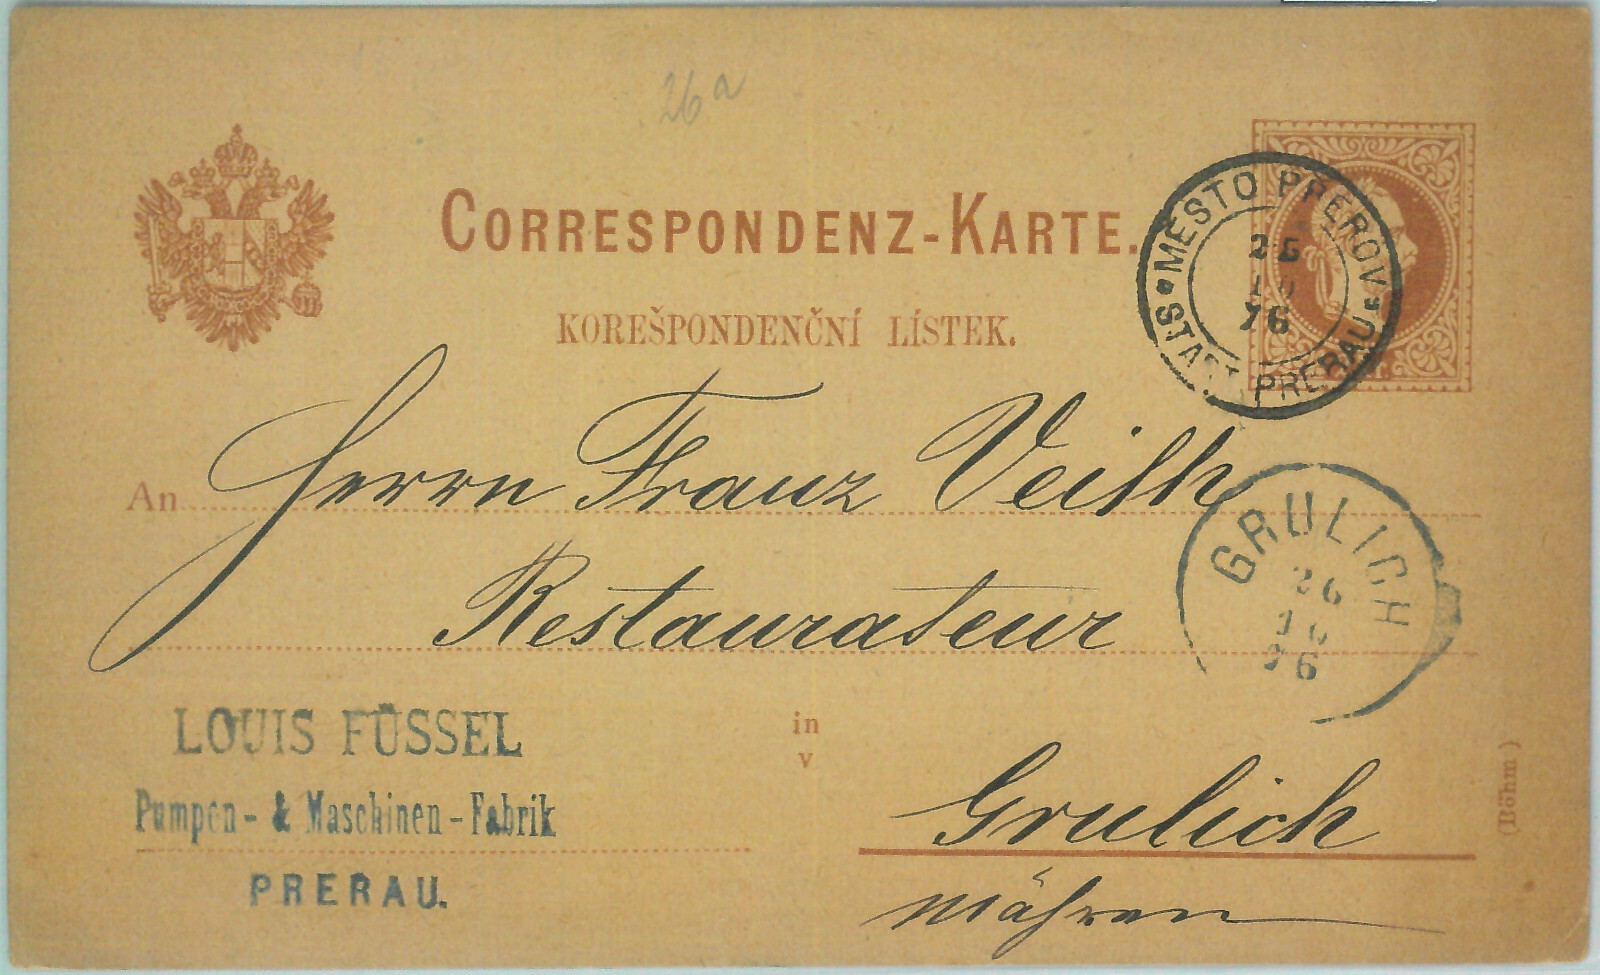 26a
CORRESPONDENZ-KARTE.
KOREŠPONDENČNÍ LÍSTEK.
MĚSTO PŘEROV
26
10
76
STADT PRERAU
An Herrn Franz Veith
Restaurateur
GRULICH
26
10
76
LOUIS FÜSSEL
Pumpen- & Maschinen-Fabrik
PRERAU.
in
v
Grulich
Mähren
(Böhm)